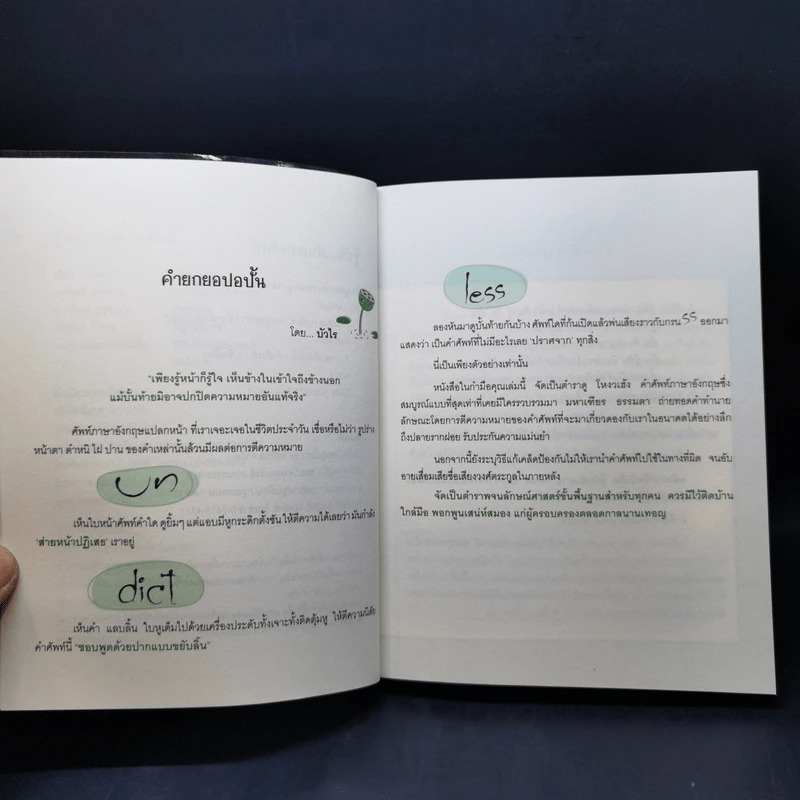 คำยกยอปอปั้น
โดย... บัวไร
"เพียงรู้หน้าก็รู้ใจ เห็นข้างในเข้าใจถึงข้างนอก
แม้บั้นท้ายมิอาจปกปิดความหมายอันแท้จริง"
ศัพท์ภาษาอังกฤษแปลกหน้า ที่เราเจอะเจอในชีวิตประจำวัน เชื่อหรือไม่ว่า รูปร่าง
หน้าตา ตำหนิ ไฝ ปาน ของคำเหล่านั้นล้วนมีผลต่อการตีความหมาย
un
เห็นใบหน้าศัพท์คำใด ดูยิ้มๆ แต่แอบมีหูกระดิกตั้งชัน ให้ตีความได้เลยว่า มันกำลัง
'ส่ายหน้าปฏิเสธ' เราอยู่
dict
เห็นคำ แลบลิ้น ใบหูเต็มไปด้วยเครื่องประดับทั้งเจาะทั้งติดตุ้มหู ให้ตีความนิสัย
คำศัพท์นี้ "ชอบพูดด้วยปากแบบขยับลิ้น"
less
ลองหันมาดูบั้นท้ายกันบ้าง ศัพท์ใดที่ก้นเปิดแล้วพ่นเสียงราวกับกรน ss ออกมา
แสดงว่า เป็นคำศัพท์ที่ไม่มีอะไรเลย 'ปราศจาก' ทุกสิ่ง
นี่เป็นเพียงตัวอย่างเท่านั้น
หนังสือในกำมือคุณเล่มนี้ จัดเป็นตำราดู โหงวเฮ้ง คำศัพท์ภาษาอังกฤษซึ่ง
สมบูรณ์แบบที่สุดเท่าที่เคยมีใครรวบรวมมา มหาเพียร ธรรมดา ถ่ายทอดคำทำนาย
ลักษณะโดยการตีความหมายของคำศัพท์ที่จะมาเกี่ยวดองกับเราในอนาคตได้อย่างลึก
ถึงปลายรากฝอย รับประกันความแม่นยำ
นอกจากนี้ยังระบุวิธีแก้เคล็ดป้องกันไม่ให้เรานำคำศัพท์ไปใช้ในทางที่ผิด จนอับ
อายเสื่อมเสียชื่อเสียงวงศ์ตระกูลในภายหลัง
จัดเป็นตำราพจนลักษณ์ศาสตร์ขั้นพื้นฐานสำหรับทุกคน ควรมีไว้ติดบ้าน
ใกล้มือ พอกพูนเสน่ห์สมอง แก่ผู้ครอบครองตลอดกาลนานเทอญ